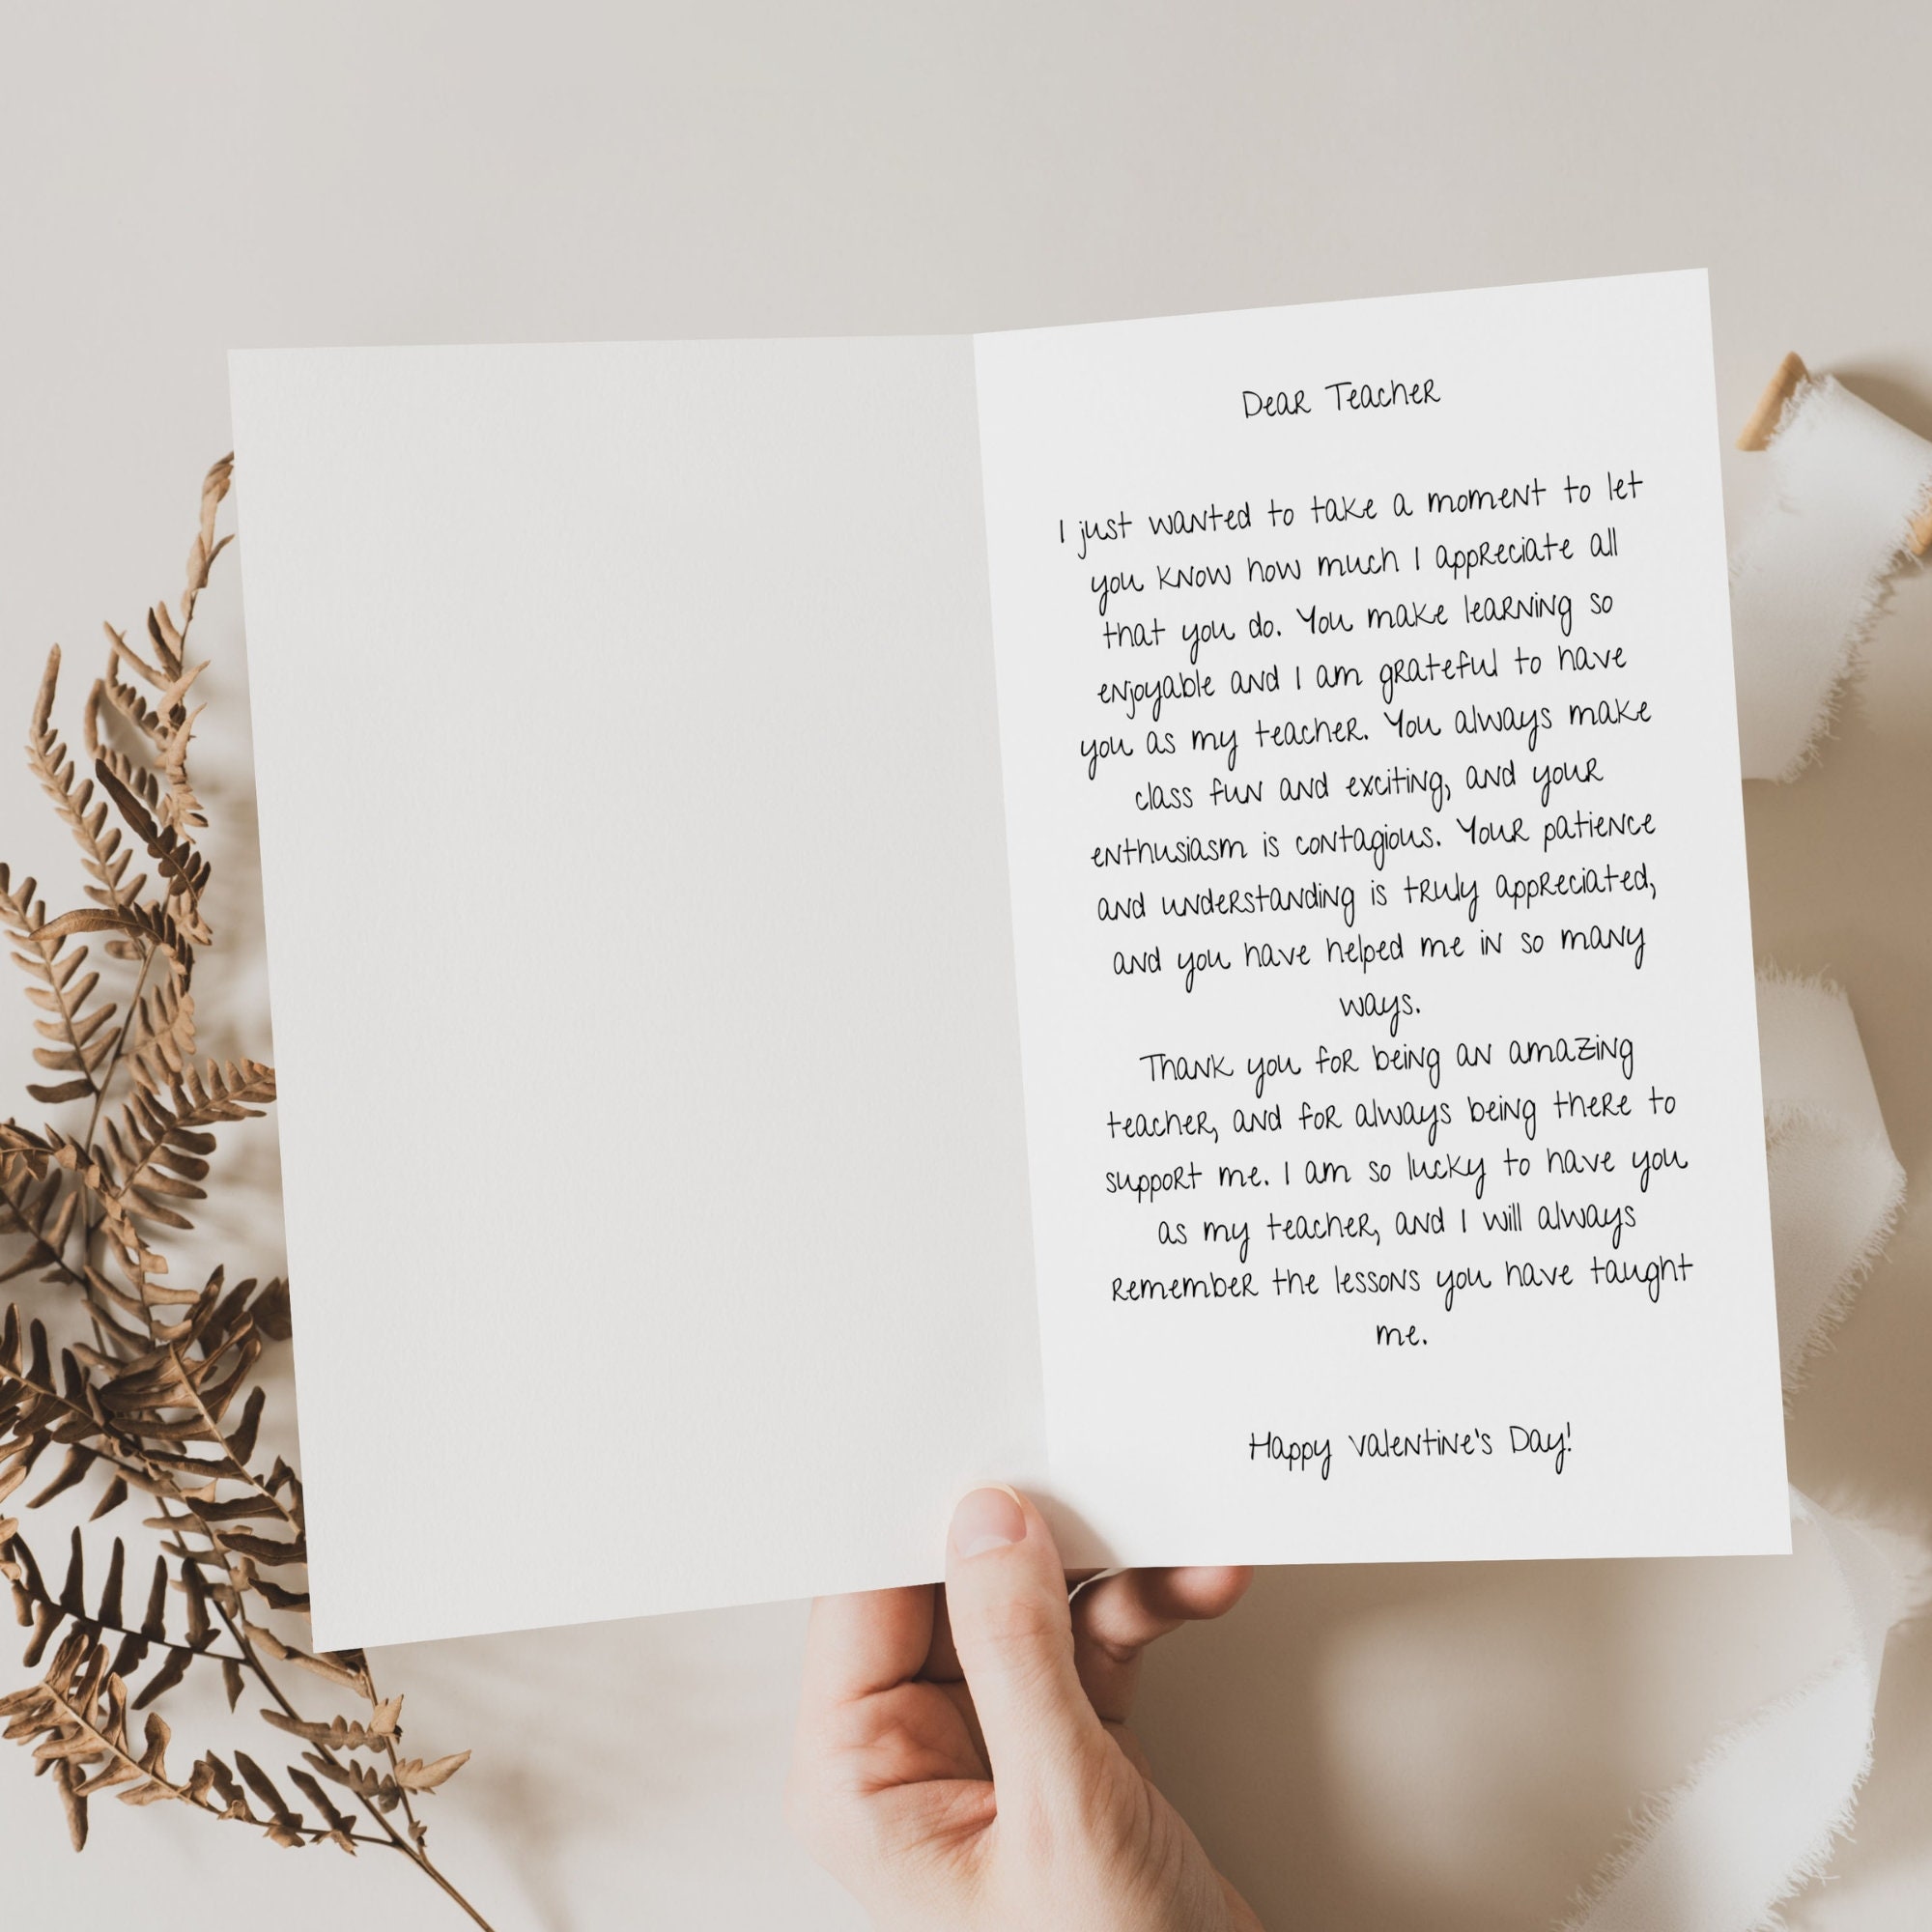 Dear Teacher
I just wanted to take a moment to let
you know how much I appreciate all
that you do. You make learning so
enjoyable and I am grateful to have
you as my teacher. You always make
class fun and exciting, and your
enthusiasm is contagious. Your patience
and understanding is truly appreciated,
and you have helped me in so many
ways.
Thank you for being an amazing
teacher, and for always being there to
support me. I am so lucky to have you
as my teacher, and I will always
remember the lessons you have taught
me.
Happy Valentine's Day!